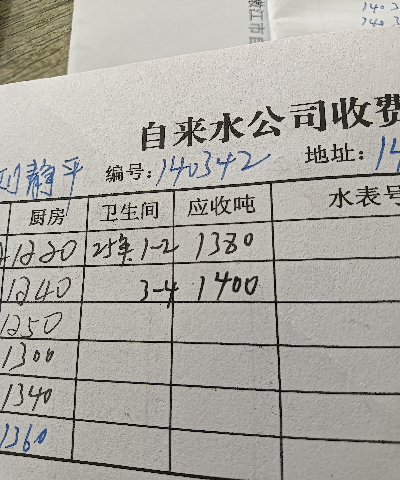 嫩江市自
140
140
自来水公司收费
静平 编号: 140342 地址: 14
厨房 卫生间 应收吨 水表号
1220 25年 1-2 1380
1240 3-4 1400
1250
1300
1340
1360